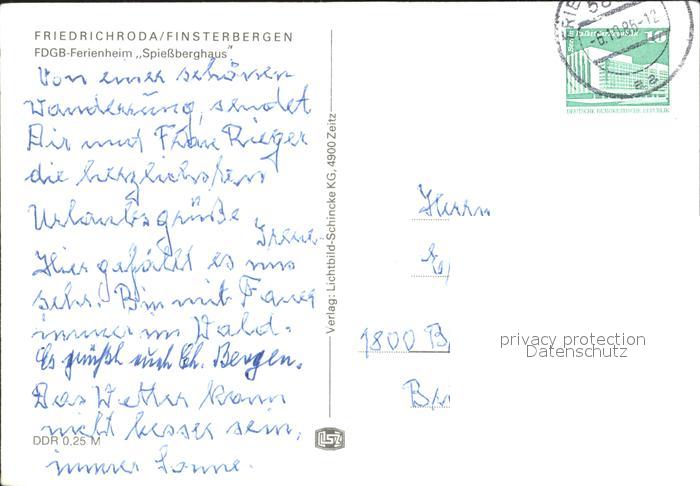 FRIEDRICHRODA/FINSTERBERGEN
FDGB-Ferienheim „Spießberghaus"
Von einer schönen
Wanderung, sendet
Dir und Frau Rieger
die herzlichsten
Urlaubsgrüße
Irene.
Hier gefällt es uns
sehr. Bin mit
immer im Wald.
Es grüßt auch Ch. Bergen.
Das Wetter kann
nicht besser sein,
immer Sonne.
DDR 0,25 M
Verlag: Lichtbild-Schincke KG, 4900 Zeitz
LSZ
-6.10.86-12
10
DEUTSCHE DEMOKRATISCHE REPUBLIK
Herrn
1800 B
privacy protection
Datenschutz